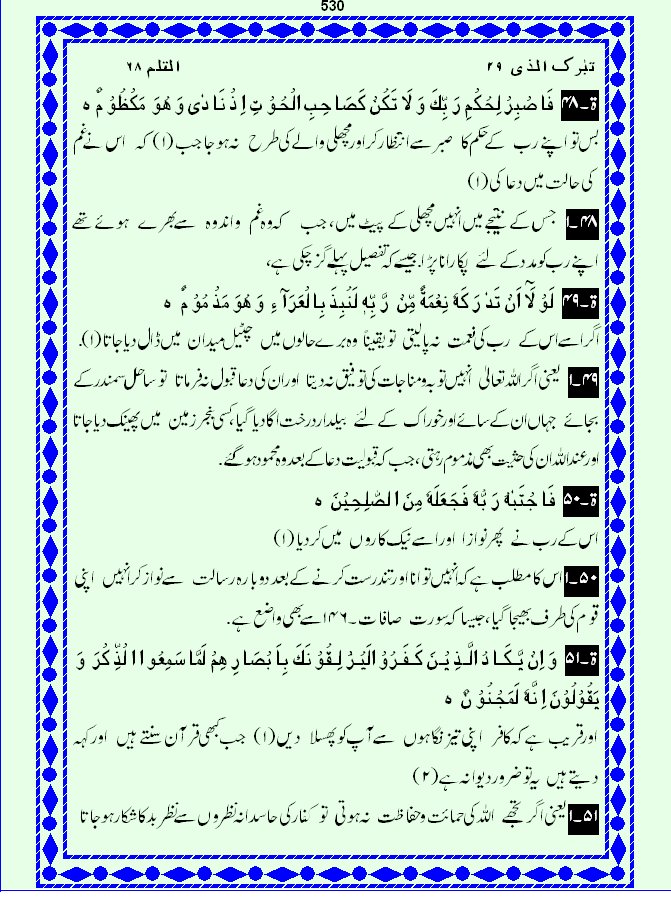 530
تبٰرک الذی ۲۹ القلم ۶۸
ۃ۔۴۸ فَاصْبِرْ لِحُكْمِ رَبِّكَ وَلَا تَكُنْ كَصَاحِبِ الْحُوْتِ اِذْ نَادٰى وَهُوَ مَكْظُوْمٌ ہ
بس تو اپنے رب کے حکم کا صبر سے انتظار کر اور مچھلی والے کی طرح نہ ہو جا جب (۱) کہ اس نے غم
کی حالت میں دعا کی (۱)
۴۸۔ا جس کے نتیجے میں انہیں مچھلی کے پیٹ میں، جب کہ وہ غم و اندوہ سے بھرے ہوئے تھے
اپنے رب کو مدد کے لئے پکارنا پڑا۔ جیسے کہ تفصیل پہلے گزر چکی ہے،
ۃ۔۴۹ لَوْ لَاۤ اَنْ تَدٰرَكَهٗ نِعْمَةٌ مِّنْ رَّبِّهٖ لَنُبِذَ بِالْعَرَآءِ وَهُوَ مَذْمُوْمٌ ہ
اگر اسے اس کے رب کی نعمت نہ پا لیتی تو یقیناً وہ برے حالوں میں چٹیل میدان میں ڈال دیا جاتا (۱)۔
۴۹۔ا یعنی اگر اللہ تعالیٰ انہیں توبہ و مناجات کی توفیق نہ دیتا اور ان کی دعا قبول نہ فرماتا تو ساحل سمندر کے
بجائے جہاں ان کے سائے اور خوراک کے لئے بیلدار درخت اگا دیا گیا، کسی بنجر زمین میں پھینک دیا جاتا
اور عند اللہ ان کی حثیت بھی مذموم رہتی، جب کہ قبولیت دعا کے بعد وہ محمود ہو گئے۔
ۃ۔۵۰ فَاجْتَبٰهُ رَبُّهٗ فَجَعَلَهٗ مِنَ الصّٰلِحِيْنَ ہ
اس کے رب نے پھر نوازا اور اسے نیک کاروں میں کر دیا (۱)
۵۰۔ا اس کا مطلب ہے کہ انہیں توانا اور تندرست کرنے کے بعد دوبارہ رسالت سے نواز کر انہیں اپنی
قوم کی طرف بھیجا گیا، جیسا کہ سورت صافات۔۱۴۶ سے بھی واضح ہے۔
ۃ۔۵۱ وَاِنْ يَّكَادُ الَّذِيْنَ كَفَرُوْا لَيُزْلِقُوْنَكَ بِاَبْصَارِهِمْ لَمَّا سَمِعُوا الذِّكْرَ وَ
يَقُوْلُوْنَ اِنَّهٗ لَمَجْنُوْنٌ ہ
اور قریب ہے کہ کافر اپنی تیز نگاہوں سے آپ کو پھسلا دیں (۱) جب کبھی قرآن سنتے ہیں اور کہہ
دیتے ہیں یہ تو ضرور دیوانہ ہے (۲)
۵۱۔ا یعنی اگر تجھے اللہ کی حمائت و حفاظت نہ ہوتی تو کفار کی حاسدانہ نظروں سے نظر بد کا شکار ہو جاتا